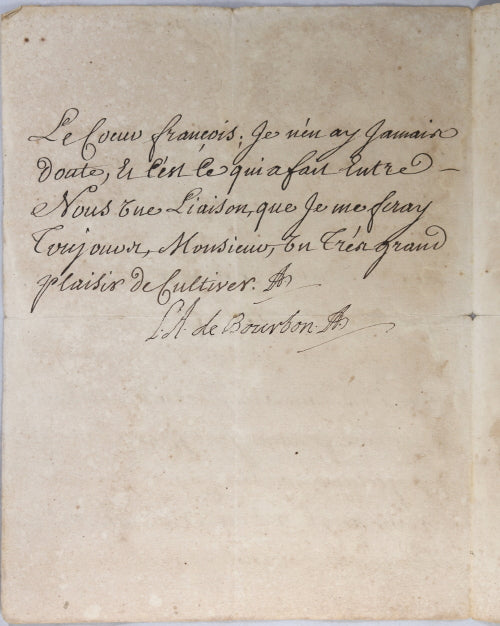 Le Coeur françois; Je n'en ay Jamais
Doute, Et C'est Ce qui a fait Entre
Nous une Liaison, que Je me feray
Toujours, Monsieur, un Trés grand
plaisir de Cultiver.
L. A. de Bourbon.